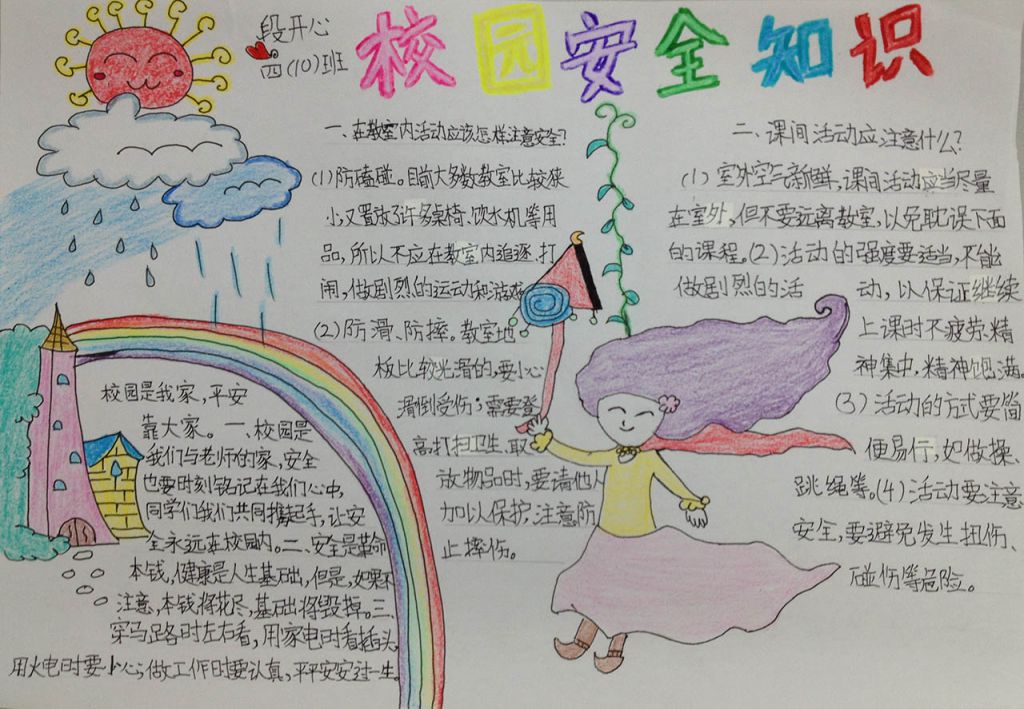 校园安全知识
段开心
四(10)班
一、在教室内活动应该怎样注意安全?
(1)防磕碰。目前大多数教室比较狭
小,又置放了许多桌椅、饮水机等用
品,所以不应在教室内追逐、打
闹,做剧烈的运动和游戏
(2)防滑、防摔。教室地
板比较光滑的,要小心
滑倒受伤;需要登
高打扫卫生、取
放物品时,要请他人
加以保护,注意防
止摔伤。
二、课间活动应注意什么?
(1)室外空气新鲜,课间活动应当尽量
在室外,但不要远离教室,以免耽误下面
的课程。(2)活动的强度要适当,不能
做剧烈的活动,以保证继续
上课时不疲劳、精
神集中,精神饱满。
(3)活动的方式要简
便易行,如做操、
跳绳等。(4)活动要注意
安全,要避免发生扭伤、
碰伤等危险。
校园是我家,平安
靠大家。一、校园是
我们与老师的家,安全
也要时刻铭记在我们心中,
同学们我们共同携起手,让安
全永远在校园内。二、安全是革命
本钱,健康是人生基础,但是,如果不
注意,本钱将花尽,基础将毁掉。三、
穿马路时左右看,用家电时看插头,
用火电时要小心;做工作时要认真,平平安安过一生。